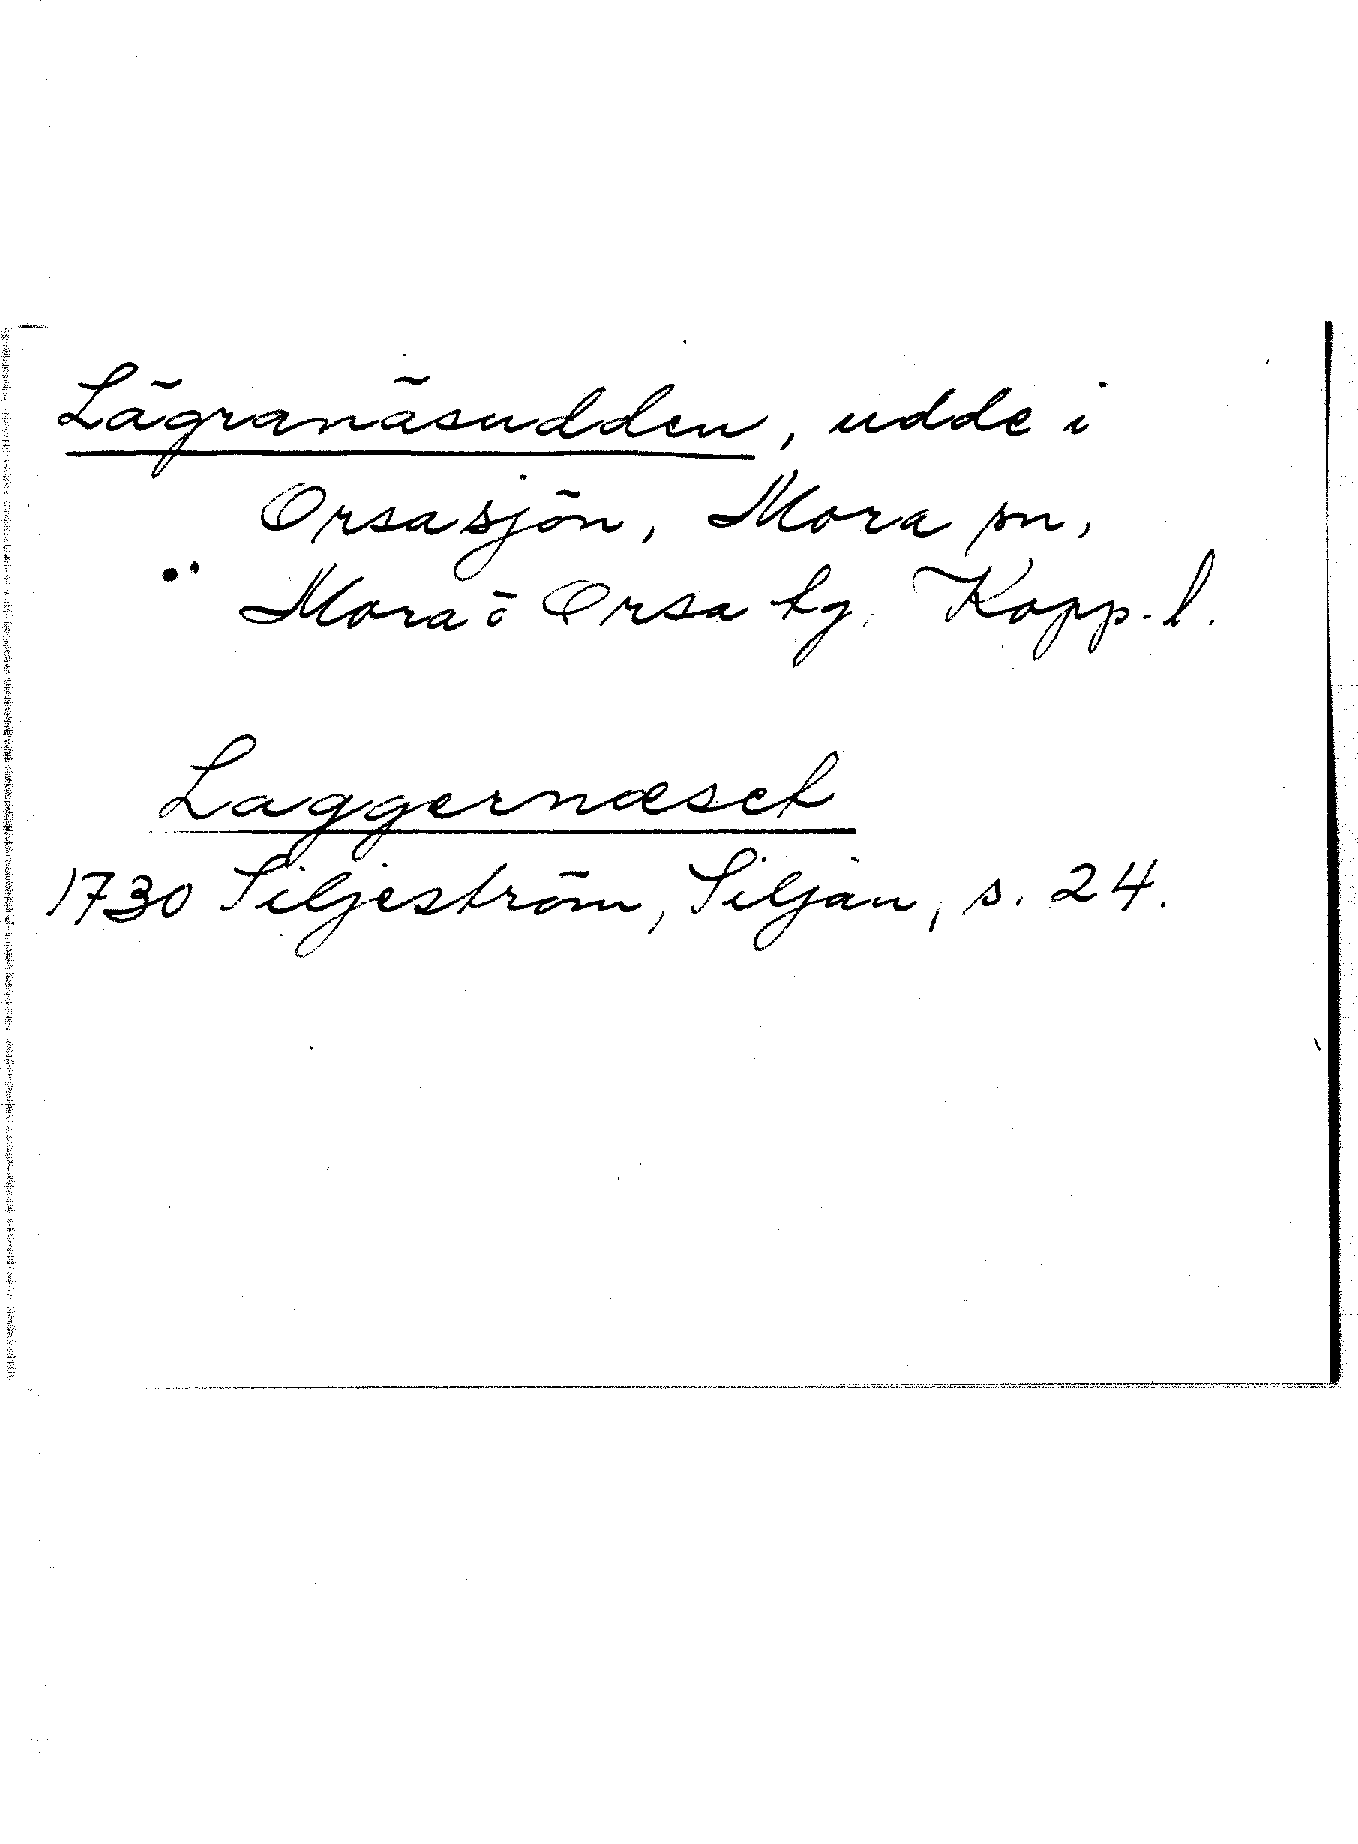 Lägranäsudden, udde i
Orsasjön, Mora sn,
Mora ö Orsa tg, Kopp. l.
Laggernæset
1730 Siljeström, Siljan, s. 24.